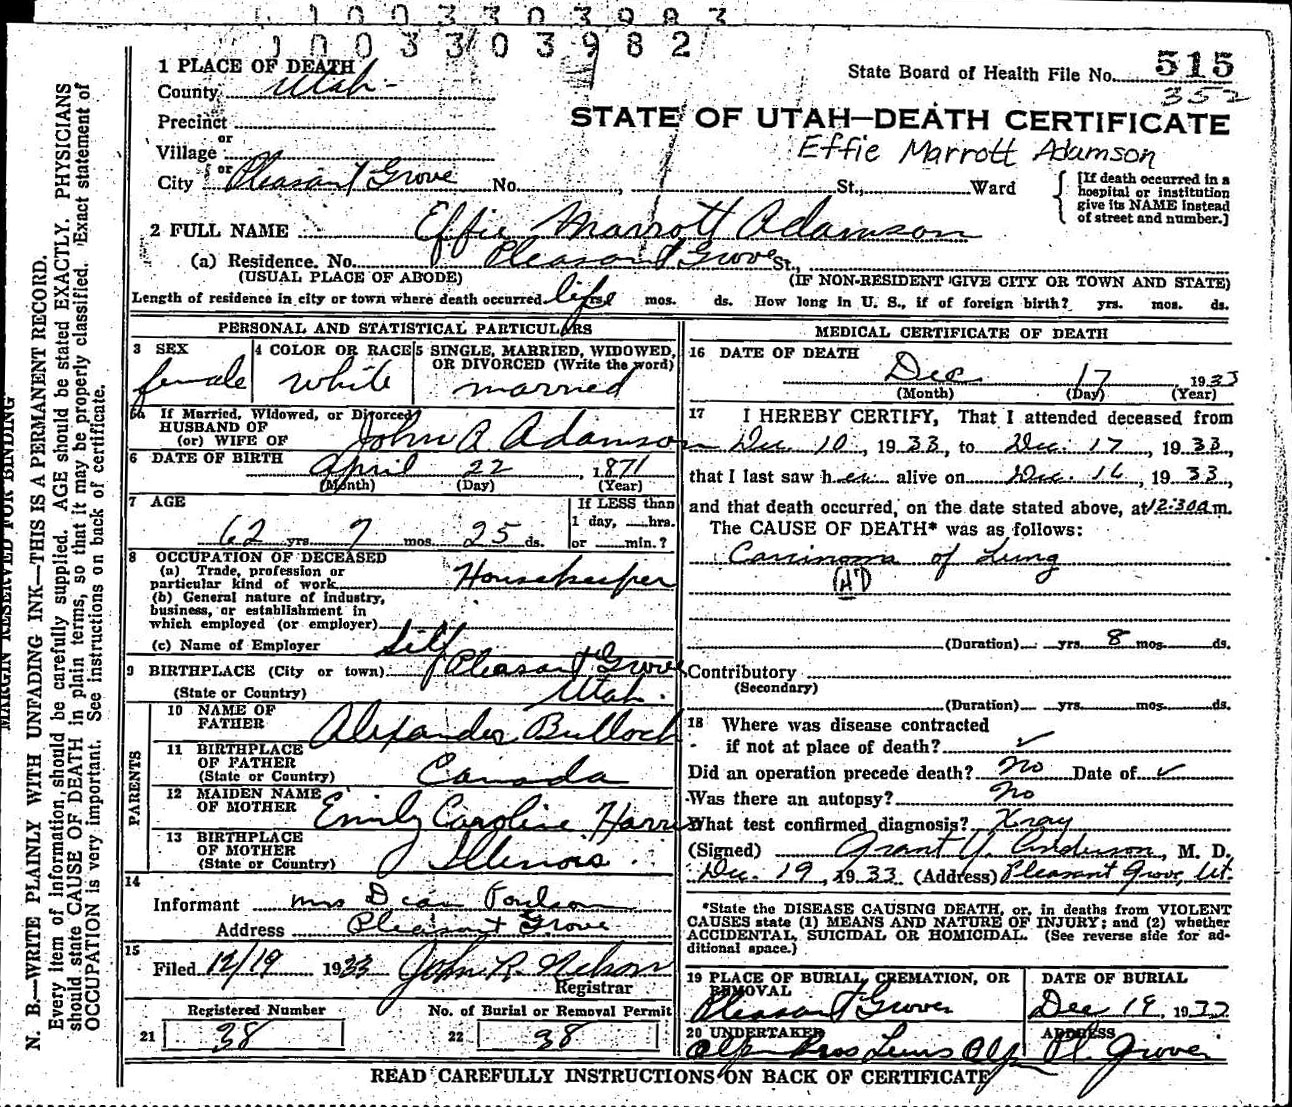 1 0 0 3 3 0 3 9 8 2
1 0 0 3 3 0 3 9 8 2
State Board of Health File No. 515
352
STATE OF UTAH—DEATH CERTIFICATE
Effie Marrott Adamson
1 PLACE OF DEATH
County Utah
Precinct
or
Village
or
City Pleasant Grove No. , St., Ward
[If death occurred in a
hospital or institution
give its NAME instead
of street and number.]
2 FULL NAME Effie Marrott Adamson
(a) Residence. No. Pleasant Grove St.,
(USUAL PLACE OF ABODE) (IF NON-RESIDENT GIVE CITY OR TOWN AND STATE)
Length of residence in city or town where death occurred life yrs. mos. ds. How long in U. S., if of foreign birth? yrs. mos. ds.
PERSONAL AND STATISTICAL PARTICULARS
3 SEX
female
4 COLOR OR RACE
white
5 SINGLE, MARRIED, WIDOWED,
OR DIVORCED (Write the word)
married
5a If Married, Widowed, or Divorced
HUSBAND OF
(or) WIFE OF John A. Adamson
6 DATE OF BIRTH April 22 1871
(Month) (Day) (Year)
7 AGE
62 yrs. 7 mos. 25 ds.
If LESS than
1 day, hrs.
or min.?
8 OCCUPATION OF DECEASED
(a) Trade, profession or
particular kind of work Housekeeper
(b) General nature of industry,
business, or establishment in
which employed (or employer)
(c) Name of Employer Self
9 BIRTHPLACE (City or town) Pleasant Grove
(State or Country) Utah.
PARENTS
10 NAME OF
FATHER Alexander Bulloch
11 BIRTHPLACE
OF FATHER
(State or Country) Canada
12 MAIDEN NAME
OF MOTHER Emily Caroline Harris
13 BIRTHPLACE
OF MOTHER
(State or Country) Illinois
14
Informant Mrs Dean
Address Pleasant Grove
15
Filed 12/19 1933 John R. Nelson
Registrar
Registered Number
21 38
No. of Burial or Removal Permit
22 38
MEDICAL CERTIFICATE OF DEATH
16 DATE OF DEATH
Dec 17 1933
(Month) (Day) (Year)
17 I HEREBY CERTIFY, That I attended deceased from
Dec. 10, 1933, to Dec. 17, 1933,
that I last saw her alive on Dec. 16, 1933,
and that death occurred, on the date stated above, at 12:30 a.m.
The CAUSE OF DEATH* was as follows:
Carcinoma of Lung
(Duration) yrs. 8 mos. ds.
Contributory
(Secondary)
(Duration) yrs. mos. ds.
18 Where was disease contracted
if not at place of death? ✓
Did an operation precede death? No Date of ✓
Was there an autopsy? no
What test confirmed diagnosis? Xray
(Signed) Grant Y. Anderson, M. D.
Dec. 19, 1933 (Address) Pleasant Grove, Ut.
*State the DISEASE CAUSING DEATH, or, in deaths from VIOLENT
CAUSES state (1) MEANS AND NATURE OF INJURY; and (2) whether
ACCIDENTAL, SUICIDAL OR HOMICIDAL. (See reverse side for ad-
ditional space.)
19 PLACE OF BURIAL, CREMATION, OR
REMOVAL
Pleasant Grove
DATE OF BURIAL
Dec 19, 1933
20 UNDERTAKER
ADDRESS
Pl. Grove
READ CAREFULLY INSTRUCTIONS ON BACK OF CERTIFICATE
MARGIN RESERVED FOR BINDING
N. B.—WRITE PLAINLY WITH UNFADING INK—THIS IS A PERMANENT RECORD.
Every item of information should be carefully supplied. AGE should be stated EXACTLY. PHYSICIANS
should state CAUSE OF DEATH in plain terms, so that it may be properly classified. Exact statement of
OCCUPATION is very important. See instructions on back of certificate.